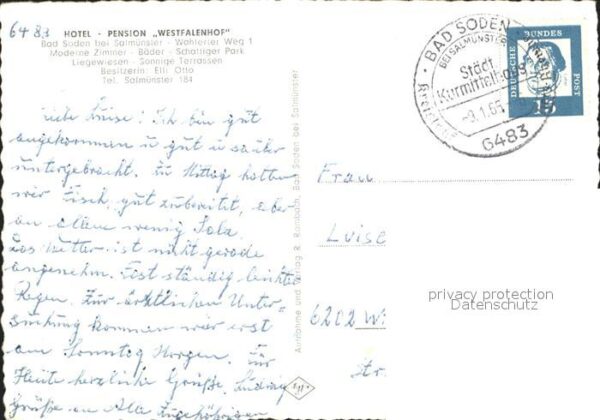 6483
HOTEL - PENSION „WESTFALENHOF"
Bad Soden bei Salmünster - Wahlerter Weg 1
Moderne Zimmer - Bäder - Schattiger Park
Liegewiesen - Sonnige Terrassen
Besitzerin: Elli Otto
Tel. Salmünster 184
Liebe Luise: Ich bin gut
angekommen u gut u sauber
untergebracht. Zu Mittag hatten
wir Fisch, gut zubereitet, aber
an allem wenig Salz
Das Wetter ist nicht gerade
angenehm. Fast ständig leichter
Regen. Zur ärztlichen Unter-
suchung kommen wir erst
am Sonntag Morgen. Für
Heute herzliche Grüße. Ludwig
Grüße an Alle Angehörigen
Aufnahme und Verlag R. Rombach, Bad Soden bei Salmünster
BAD SODEN
BEI SALMÜNSTER
Städt
Kurmittelhaus
-9.1.65
6483
DEUTSCHE BUNDES POST
15
Frau
Luise
6202 Wi
Str.
privacy protection
Datenschutz